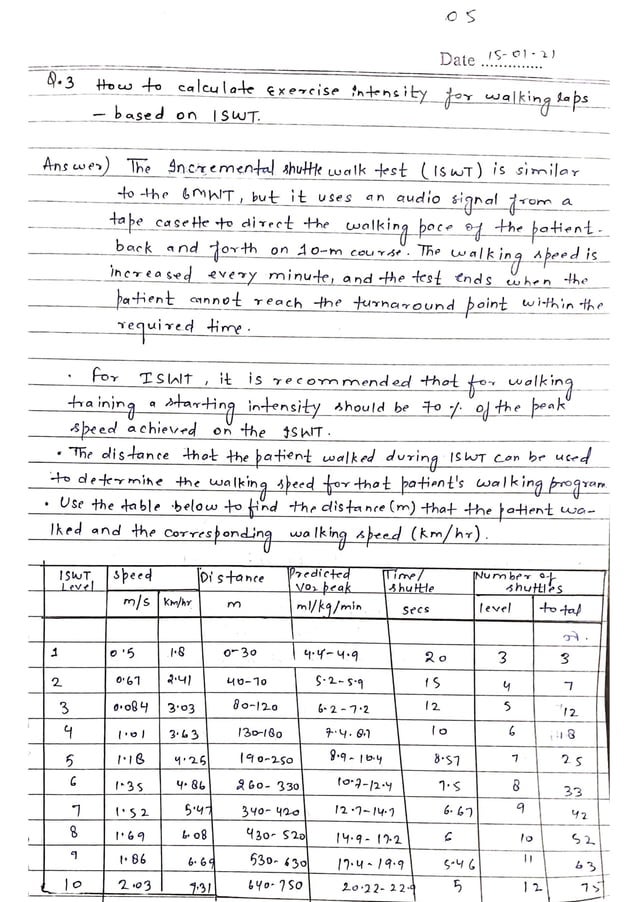 05
Date 15-01-21
Q.3 How to calculate Exercise intensity for walking laps
- based on ISWT.
Answer) The Incremental shuttle walk test (ISWT) is similar
to the 6MWT, but it uses an audio signal from a
tape casette to direct the walking pace of the patient-
back and forth on 10-m course. The walking speed is
increased every minute, and the test ends when the
patient cannot reach the turnaround point within the
required time.
• For ISWT, it is recommended that for walking
training a starting intensity should be 70 % of the peak
speed achieved on the ISWT.
• The distance that the patient walked during ISWT can be used
to determine the walking speed for that patient's walking program
• Use the table below to find the distance (m) that the patient wa-
lked and the corresponding walking speed (km/hr).
ISWT Level Speed Distance Predicted VO2 peak Time/shuttle Number of shuttles
m/s km/hr m ml/kg/min secs level total
1 0.5 1.8 0-30 4.4-4.9 20 3 3
2 0.67 2.41 40-70 5.2-5.9 15 4 7
3 0.084 3.03 80-120 6.2-7.2 12 5 12
4 1.01 3.63 130-180 10 6 18
5 1.18 4.25 190-250 8.9-10.4 8.57 7 25
6 1.35 4.86 260-330 10.7-12.4 7.5 8 33
7 1.52 5.47 340-420 12.7-14.7 6.67 9 42
8 1.69 6.08 430-520 14.9-17.2 6 10 52
9 1.86 6.69 530-630 17.4-19.9 5.46 11 63
10 2.03 7.31 640-750 20.22-22.9 5 12 75